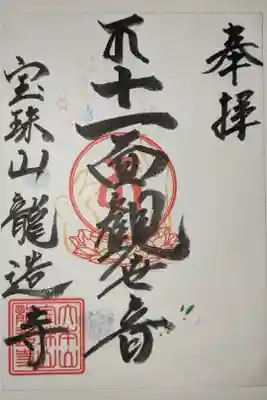 奉拝
十一面観世音
宝珠山龍造寺